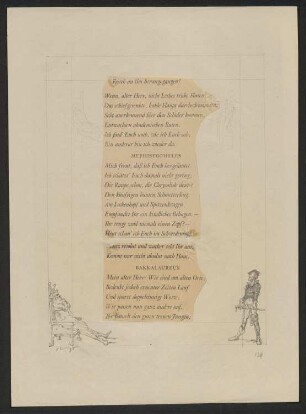 Frisch an ihn herangegangen!
Wenn, alter Herr, nicht Lethes trübe Fluten
Das schiefgesenkte, kahle Haupt durchschwommen,
Seht anerkennend hier den Schüler kommen,
Entwachsen akademischen Ruten.
Ich find' Euch noch, wie ich Euch sah;
Ein anderer bin ich wieder da.
MEPHISTOPHELES
Mich freut, daß ich Euch hergeläutet.
Ich schätzt' Euch damals nicht gering;
Die Raupe schon, die Chrysalide deutet
Den künftigen bunten Schmetterling.
Am Lockenkopf und Spitzenkragen
Empfandet Ihr ein kindliches Behagen. –
Ihr trugt wohl niemals einen Zopf? –
Heut schau' ich Euch im Schwedenkopf.
Ganz resolut und wacker seht Ihr aus;
Kommt nur nicht absolut nach Haus.
BAKKALAUREUS
Mein alter Herr! Wir sind am alten Orte;
Bedenkt jedoch erneuter Zeiten Lauf
Und sparet doppelsinnige Worte;
Wir passen nun ganz anders auf.
Ihr hänseltet den guten treuen Jungen;